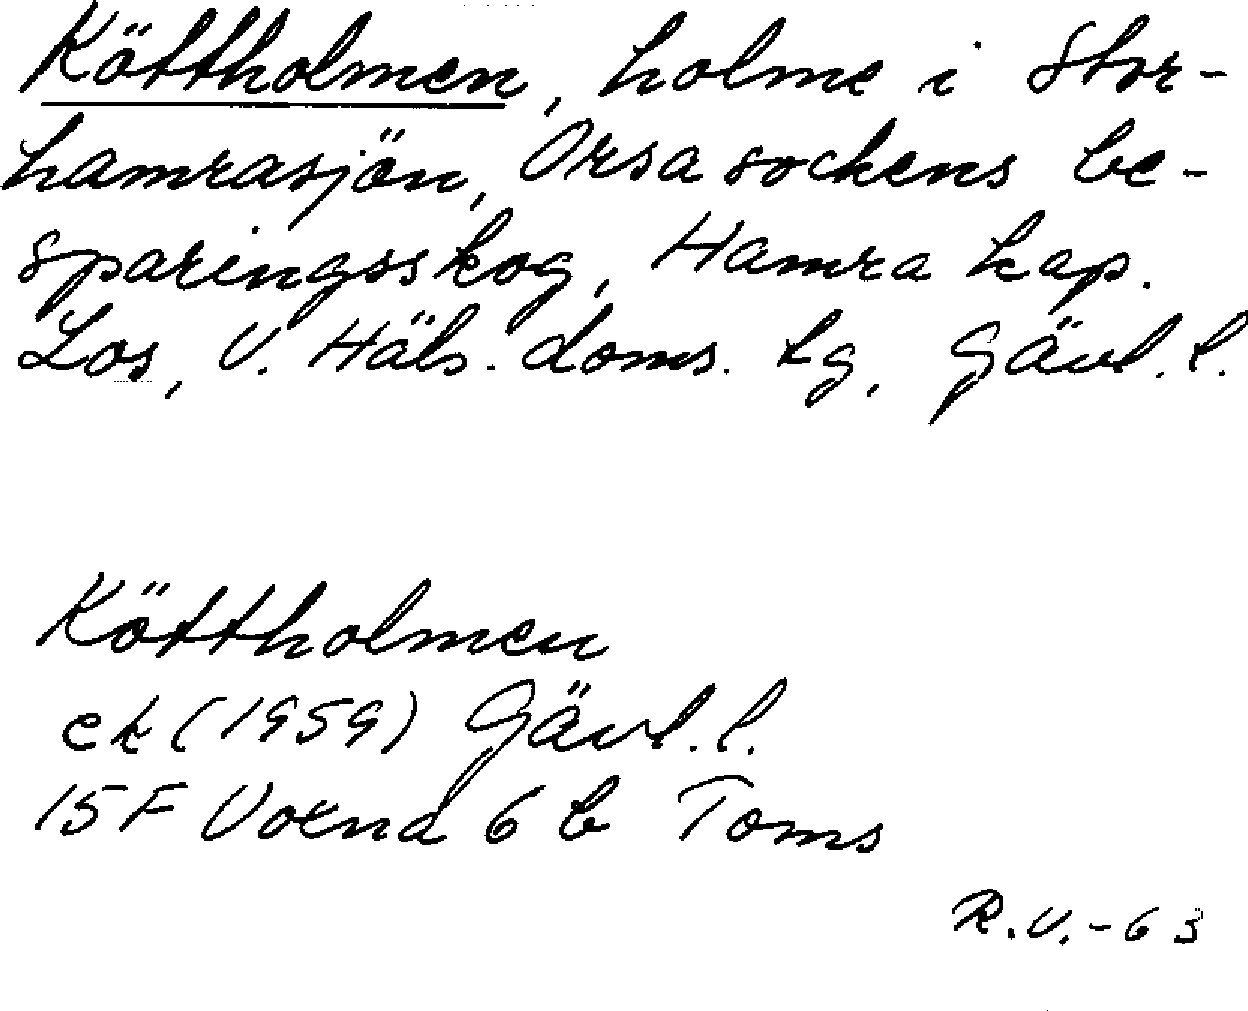 Köttholmen, holme i Stor-
hamrasjön, Orsa sockens be-
sparingsskog, Hamra kap.
Los, V. Häls. doms. lg, Gävl. l.
Köttholmen
ek (1959) Gävl. l.
15 F Voxna 6 b Toms
R.V.-63